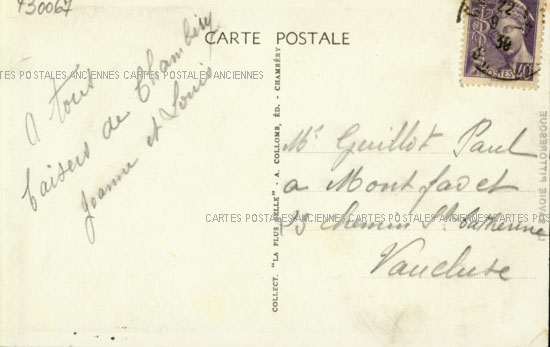 430067
CARTE POSTALE
A tous
baisers de Chambéry
Jeanne et Louis
COLLECT. "LA PLUS BELLE" - A. COLLOMB, ÉD. - CHAMBÉRY
Mr Guillot Paul
a Montfavet
chemin Ste Catherine
Vaucluse
CARTES POSTALES ANCIENNES CARTES POSTALES ANCIENNES
CARTES POSTALES ANCIENNES CARTES POSTALES ANCIENNES
SAVOIE PITTORESQUE
POSTES